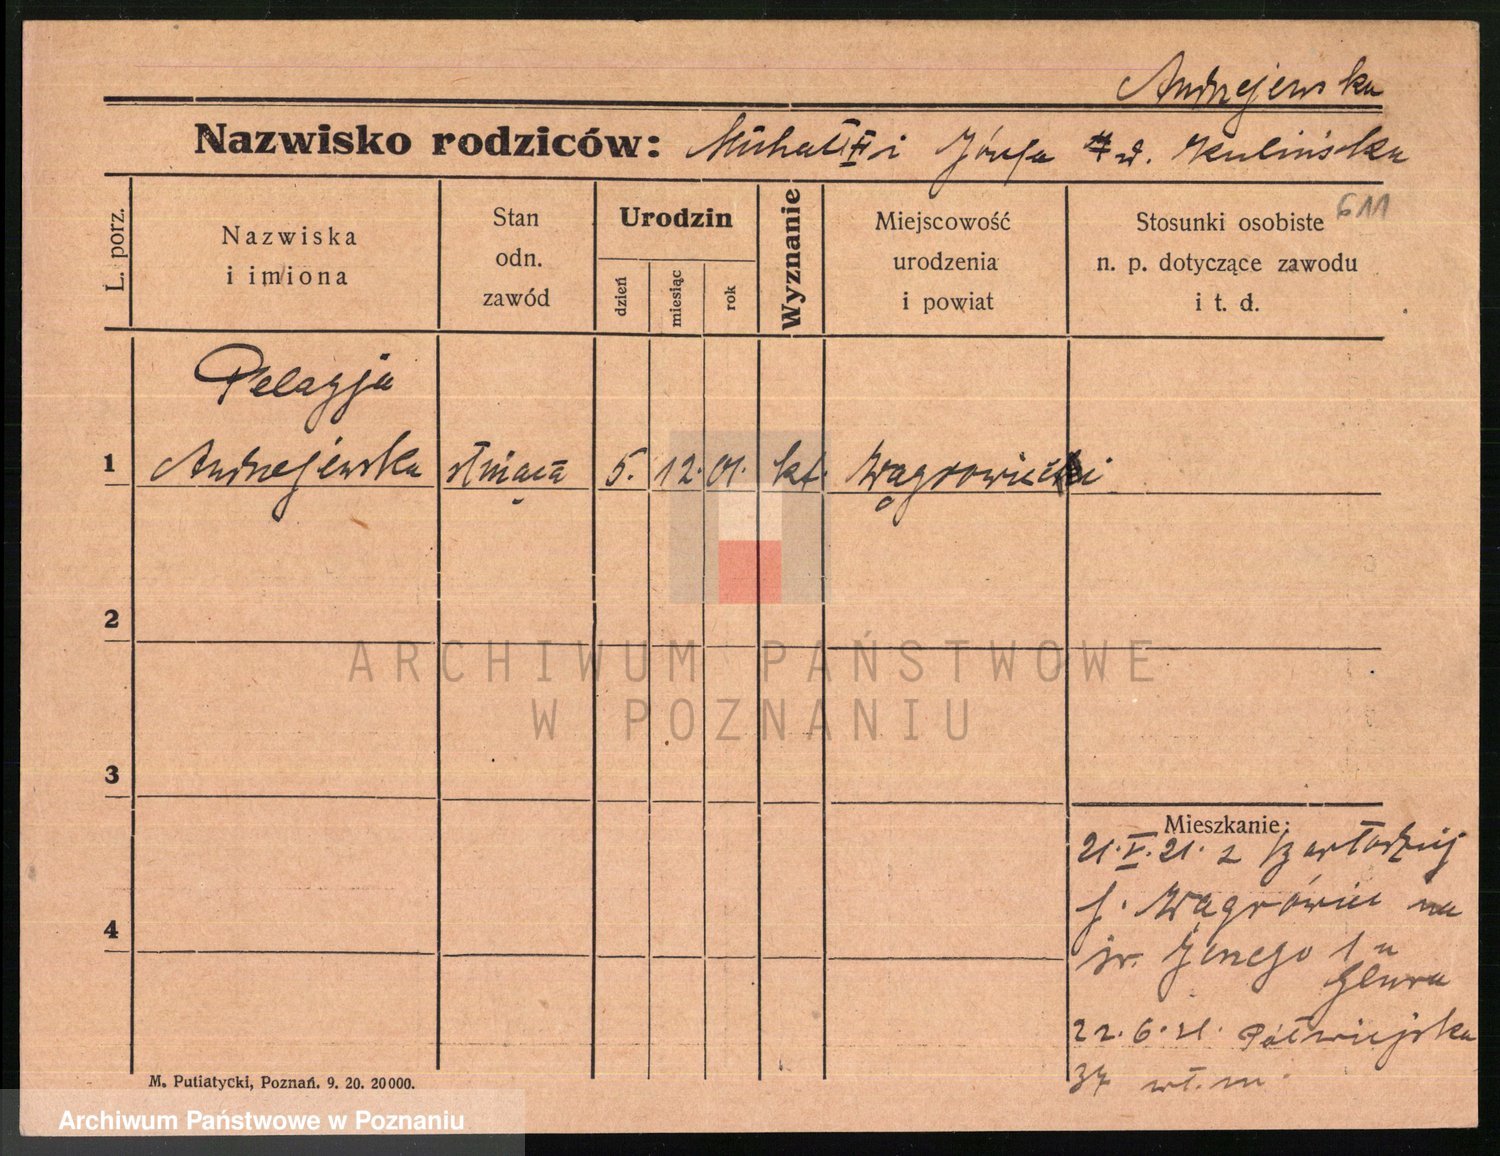 Andrzejewska
Nazwisko rodziców: Michał i Józefa z d. Kulińska
611
L. porz.
Nazwiska
i imiona
Stan
odn.
zawód
Urodzin
dzień
miesiąc
rok
Wyznanie
Miejscowość
urodzenia
i powiat
Stosunki osobiste
n. p. dotyczące zawodu
i t. d.
Pelagja
1 Andrzejewska służąca 5. 12. 01. kt. Wągrowiec
2
3
4
Mieszkanie:
21.V.21. z
p. Wągrówiec na
św. Jerzego 1 u
22.6.21. Półwiejska
37 wł. m.
M. Putiatycki, Poznań. 9. 20. 20000.
ARCHIWUM PAŃSTWOWE
W POZNANIU
Archiwum Państwowe w Poznaniu